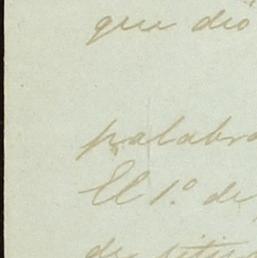 que dió
palabra
El 1º. de